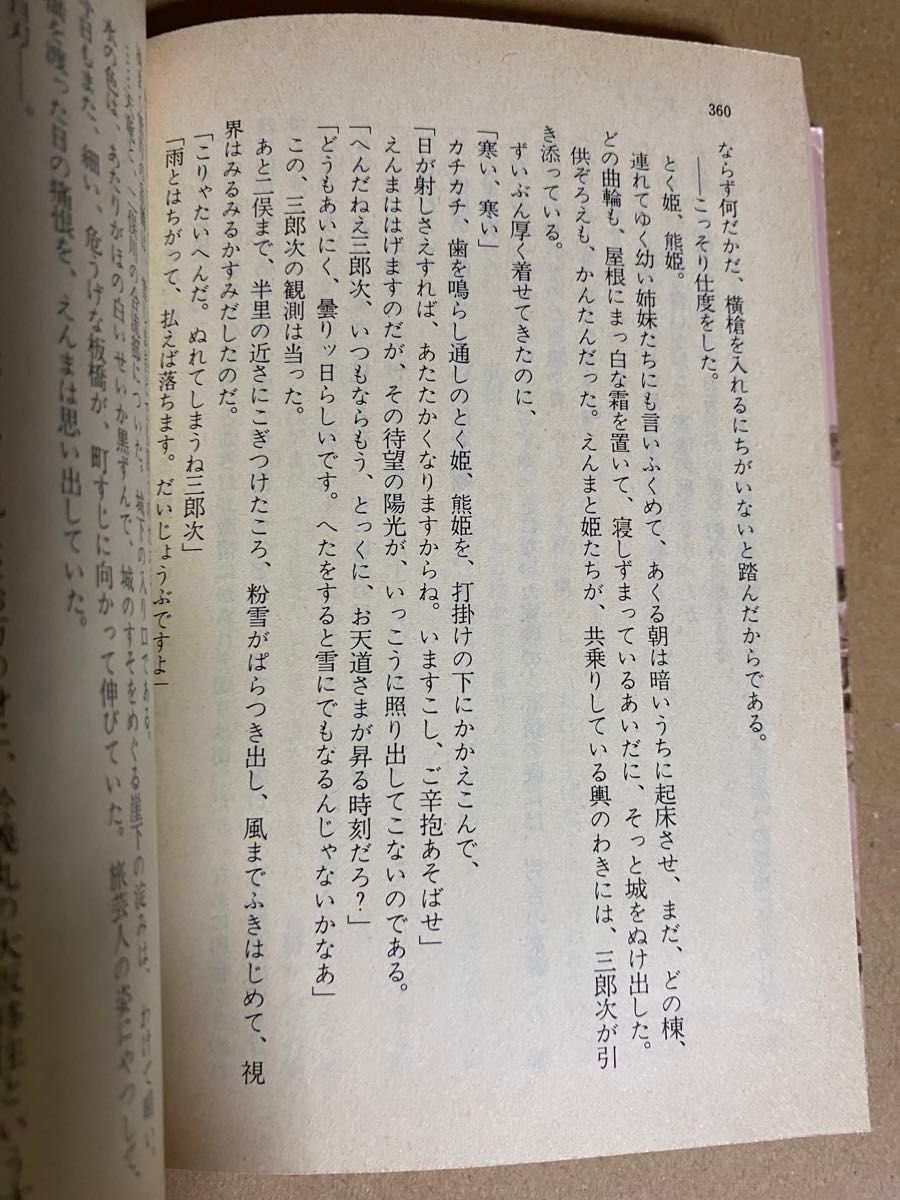 360
ならず何だかだ、横槍を入れるにちがいないと踏んだからである。
――こっそり仕度をした。
とく姫、熊姫。
連れてゆく幼い姉妹たちにも言いふくめて、あくる朝は暗いうちに起床させ、まだ、どの棟、
どの曲輪も、屋根にまっ白な霜を置いて、寝しずまっているあいだに、そっと城をぬけ出した。
供ぞろえも、かんたんだった。えんまと姫たちが、共乗りしている輿のわきには、三郎次が引
き添っている。
ずいぶん厚く着せてきたのに、
「寒い、寒い」
カチカチ、歯を鳴らし通しのとく姫、熊姫を、打掛けの下にかかえこんで、
「日が射しさえすれば、あたたかくなりますからね。いますこし、ご辛抱あそばせ」
えんまははげますのだが、その待望の陽光が、いっこうに照り出してこないのである。
「へんだねえ三郎次、いつもならもう、とっくに、お天道さまが昇る時刻だろ？」
「どうもあいにく、曇りッ日らしいです。へたをすると雪にでもなるんじゃないかなあ」
この、三郎次の観測は当った。
あと二俣まで、半里の近さにこぎつけたころ、粉雪がぱらつき出し、風までふきはじめて、視
界はみるみるかすみだしたのだ。
「こりゃたいへんだ。ぬれてしまうね三郎次」
「雨とはちがって、払えば落ちます。だいじょうぶですよ」
についた。城下の入り口である。
水の色は、あたりがほの白いせいか黒ずんで、城のすそをめぐる崖下の淀みは、わけて暗い。
今日もまた、細い、危うげな板橋が、町すじに向かって伸びていた。旅芸人の姿にやつして、
を渡った日の痛恨を、えんまは思い出していた。